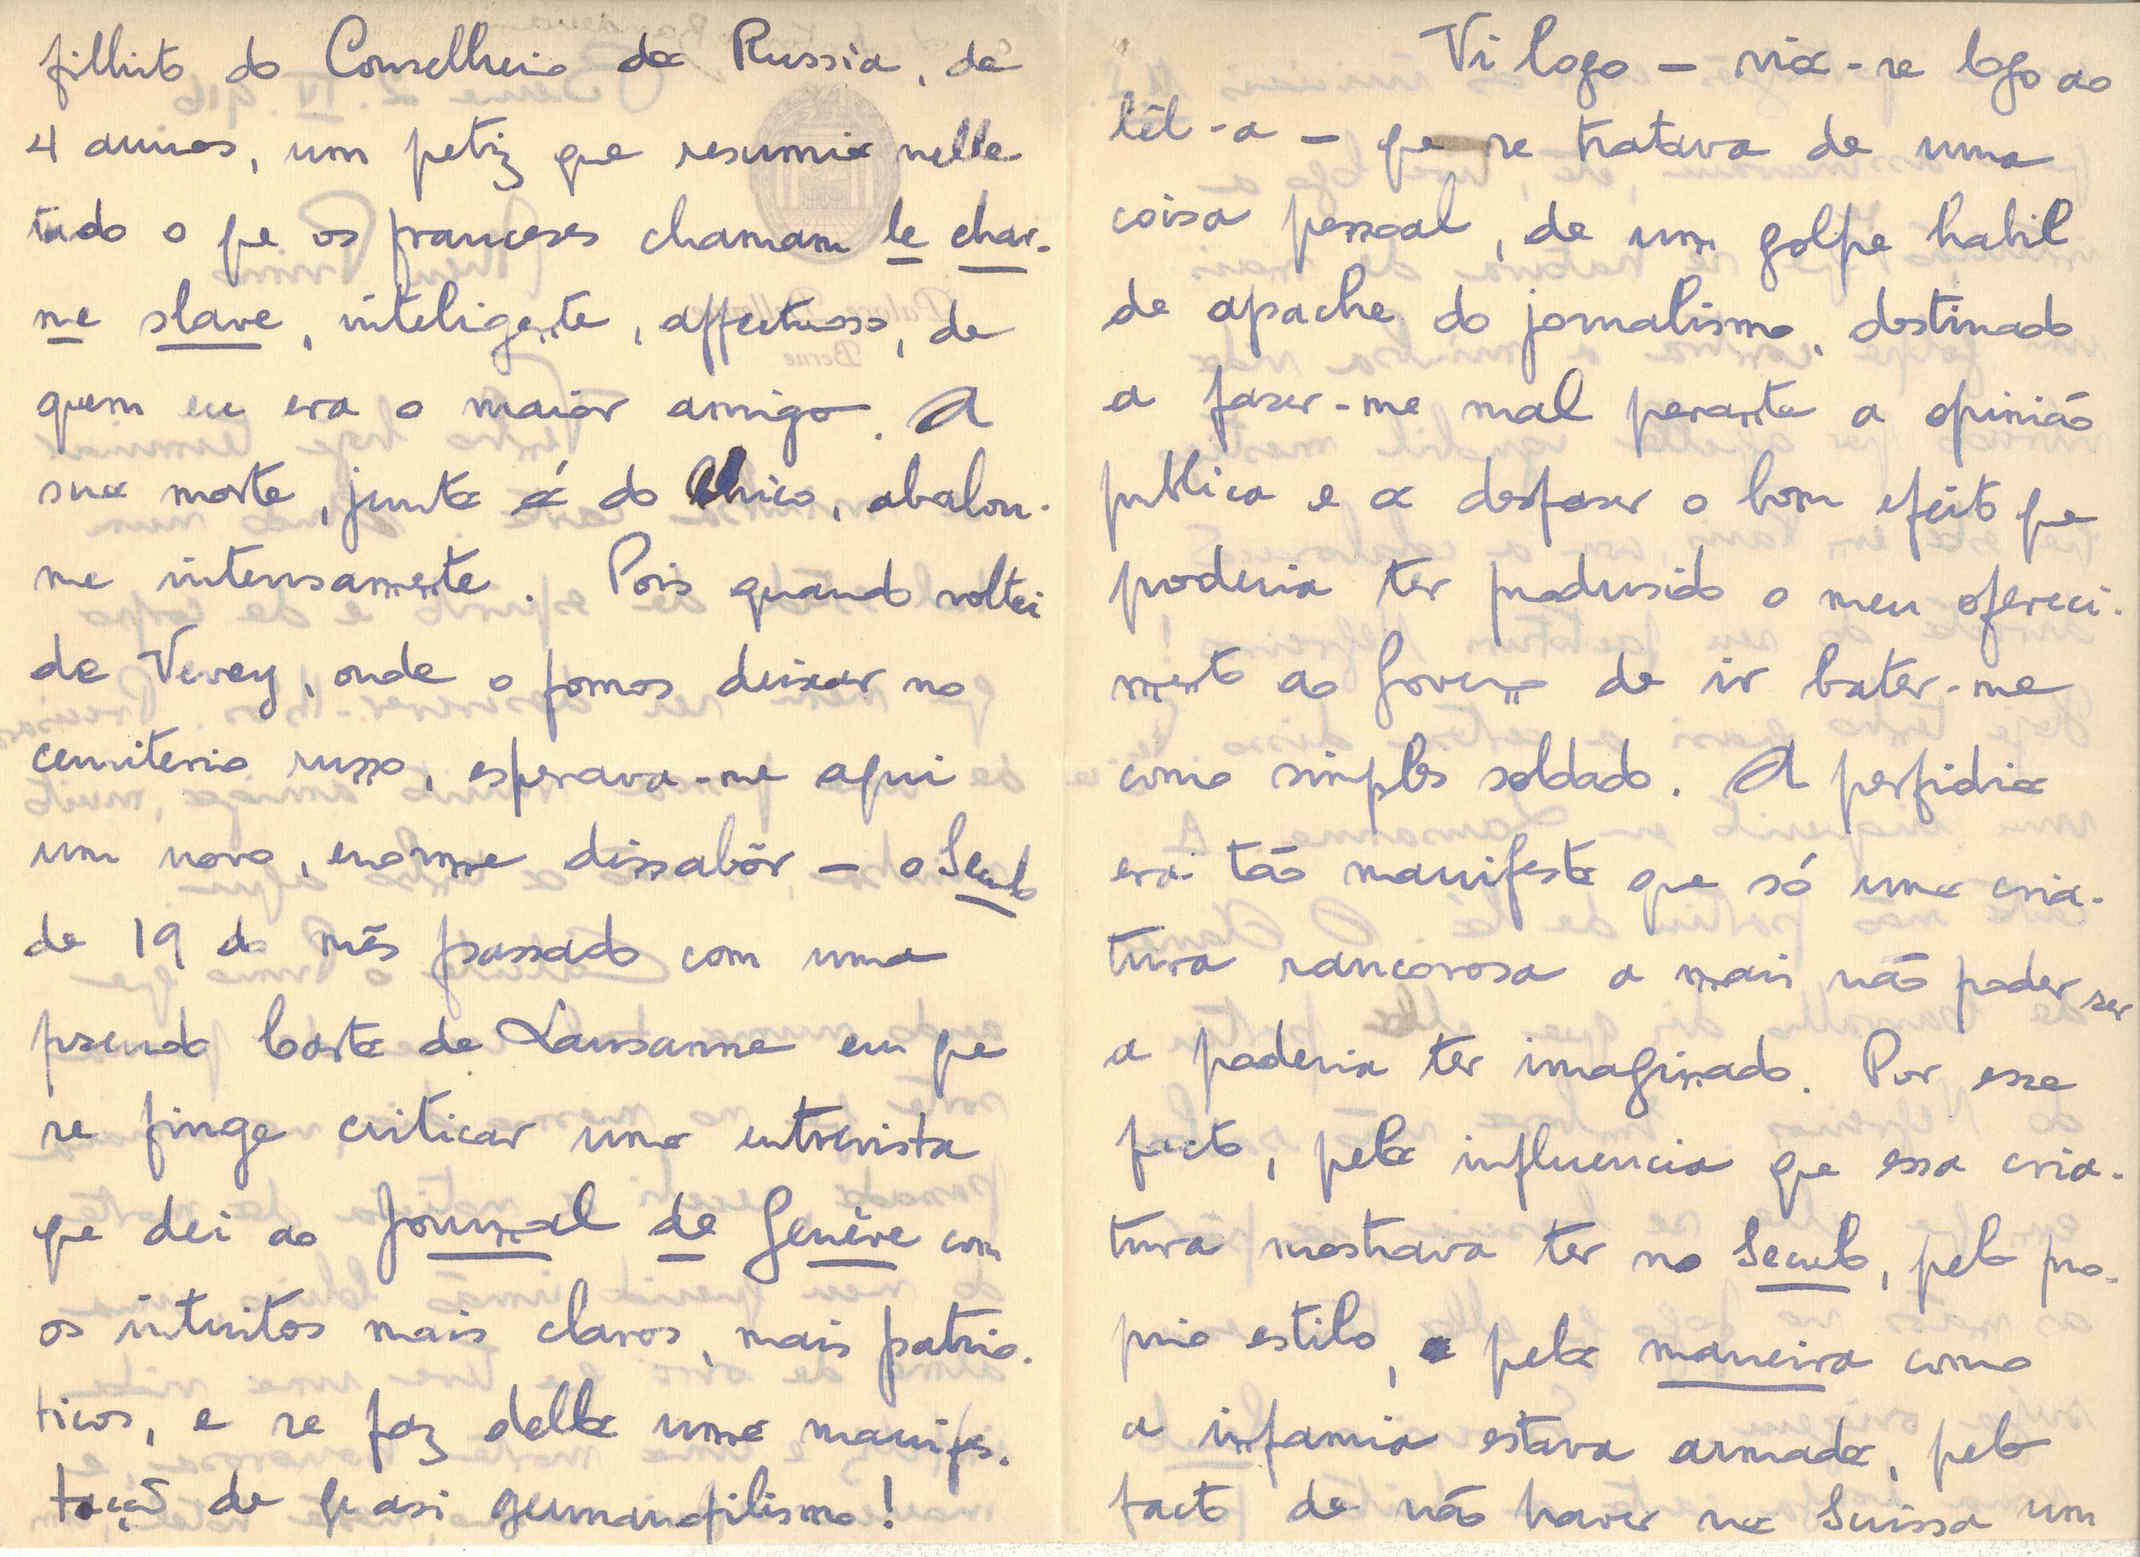 filhito do Conselheiro da Russia, de
4 annos, um petiz que resumia nelle
tudo o que os franceses chamam le char-
me slave, inteligente, affectuoso, de
quem eu era o maior amigo. A
sua morte, junta á do Chico, abalou-
me intensamente. Pois quando voltei
de Vevey, onde o fomos deixar no
cemiterio russo, esperava-me aqui
um novo, enorme dissabôr – o Seculo
de 19 do mês passado com uma
pseudo Carta de Lausanne em que
se finge criticar uma entrevista
que dei ao Journal de Genève com
os intuitos mais claros, mais patrio-
ticos, e se faz della uma manifes-
tação de quasi germanofilismo!
Vi logo – via-se logo ao
lêl-a – que se tratava de uma
coisa pessoal, de um golpe habil
de apache do jornalismo, destinado
a fazer-me mal perante a opinião
publica e a desfazer o bom efeito que
poderia ter produsido o meu ofereci-
mento ao Governo de ir bater-me
como simples soldado. A perfidia
era tão manifesta que só uma cria-
tura rancorosa a mais não poder ser
a poderia ter imaginado. Por esse
facto, pela influencia que essa cria-
tura mostrava ter no Seculo, pelo pro-
prio estilo, pela maneira como
a infamia estava armada, pelo
facto de não haver na Suissa um